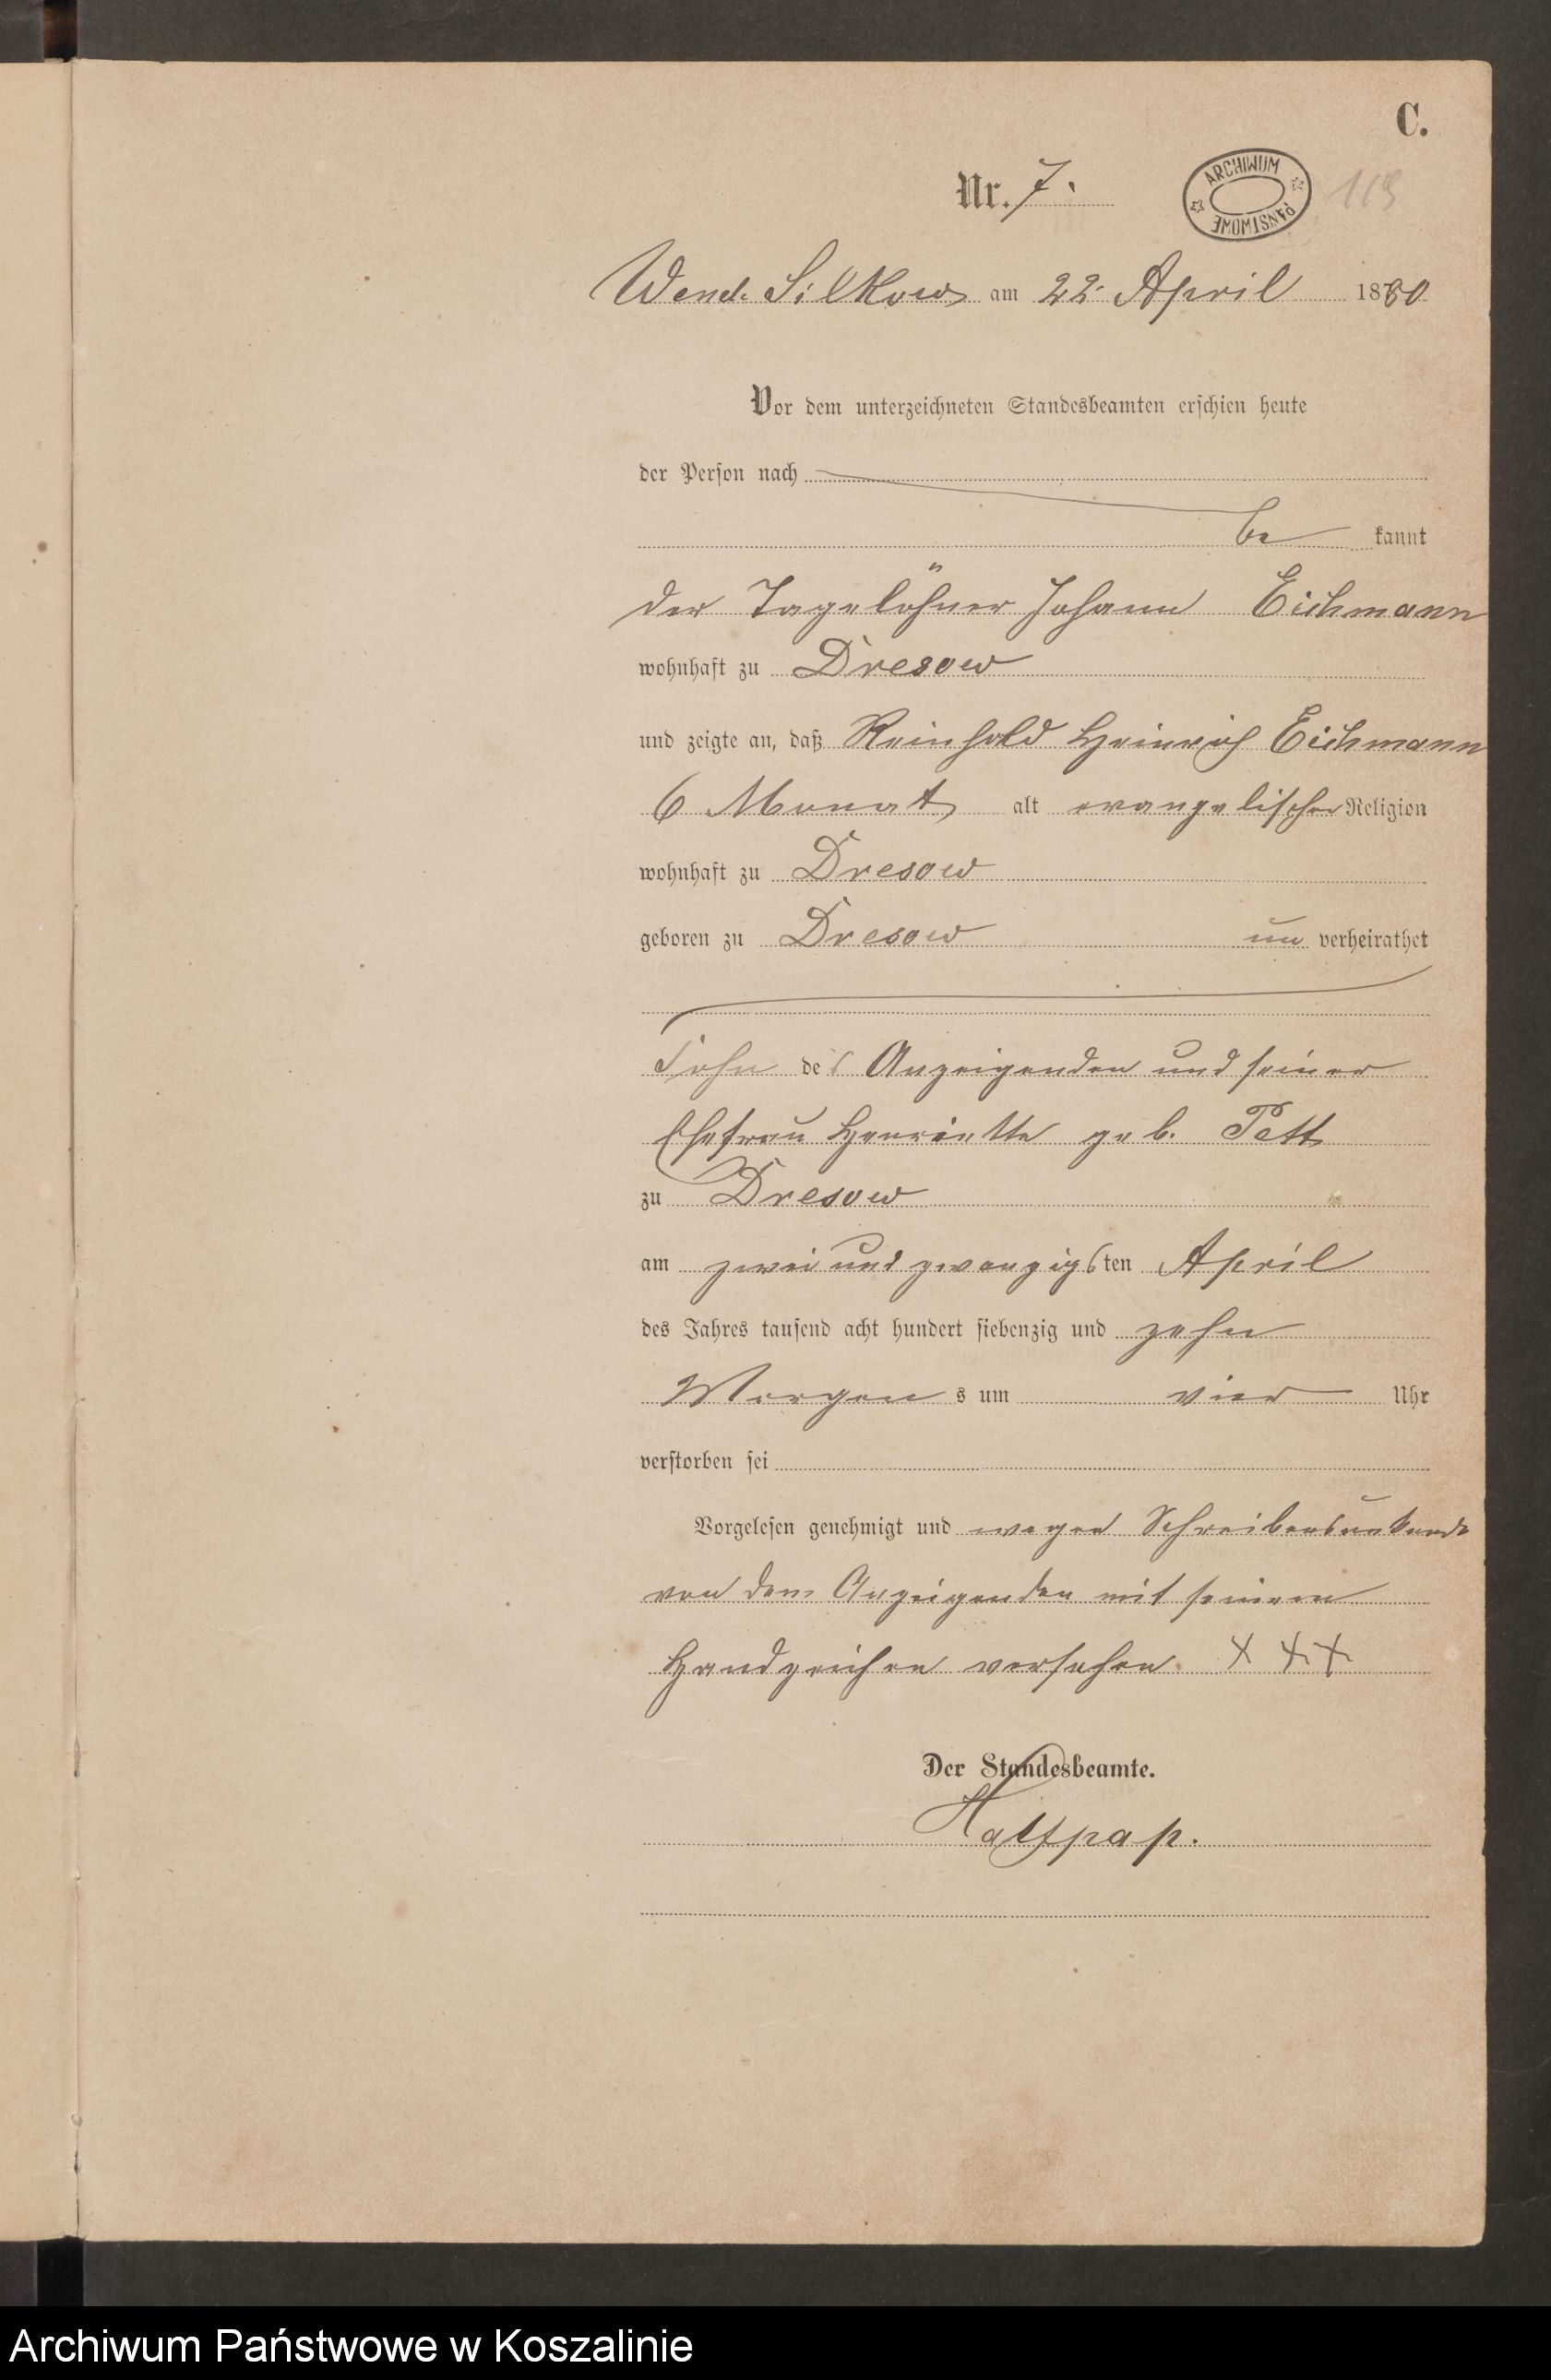 C.
Nr. 7.
ARCHIWUM PAŃSTWOWE
119
Wend. Silkow am 22. April 1880
Vor dem unterzeichneten Standesbeamten erschien heute
der Person nach
be kannt
der Tagelöhner Johann Eichmann
wohnhaft zu Dresow
und zeigte an, daß Reinhold Heinrich Eichmann
6 Monat alt evangelischer Religion
wohnhaft zu Dresow
geboren zu Dresow un verheirathet
Sohn des Anzeigenden und seiner
Ehefrau Henriette geb. Pett
zu Dresow
am zwei und zwanzigsten April
des Jahres tausend acht hundert siebenzig und zehn
Morgen s um vier Uhr
verstorben sei
Vorgelesen genehmigt und wegen Schreibensunkunde
von dem Anzeigenden mit seinem
Handzeichen versehen. + + +
Der Standesbeamte.
Archiwum Państwowe w Koszalinie